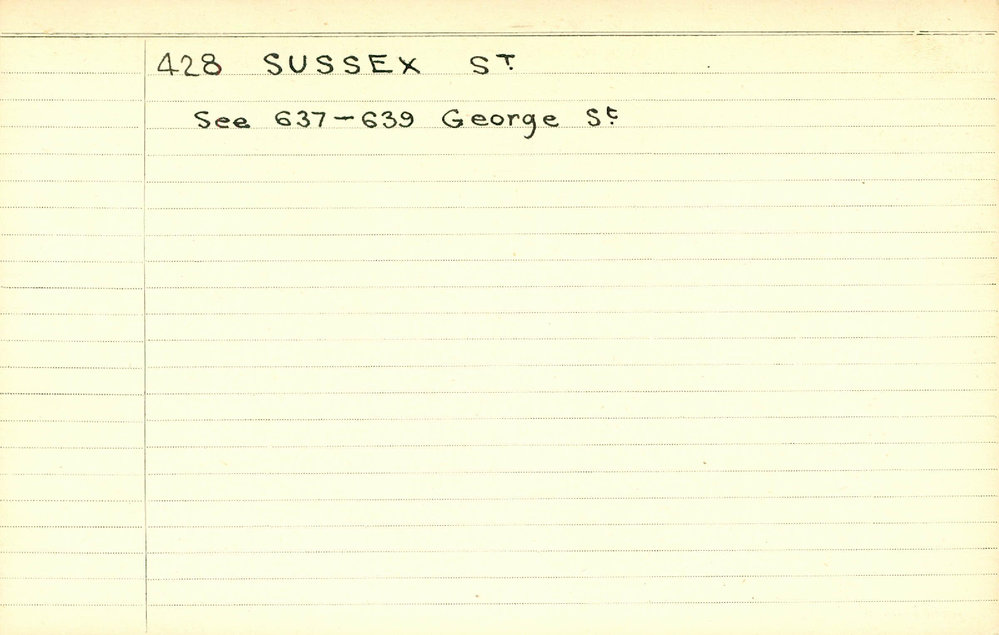 428 SUSSEX ST.
See 637-639 George St.